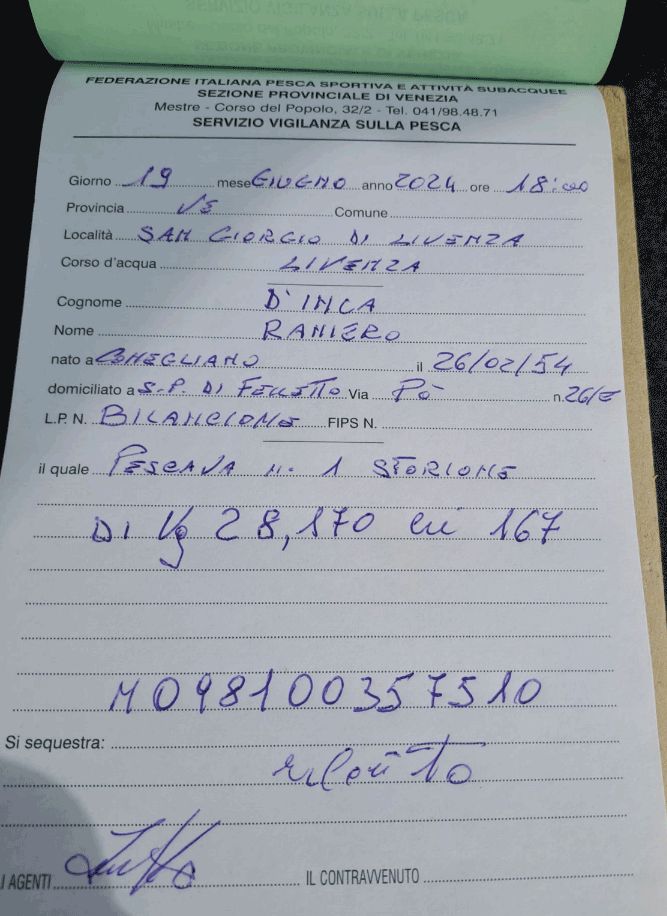 FEDERAZIONE ITALIANA PESCA SPORTIVA E ATTIVITÀ SUBACQUEE
SEZIONE PROVINCIALE DI VENEZIA
Mestre - Corso del Popolo, 32/2 - Tel. 041/98.48.71
SERVIZIO VIGILANZA SULLA PESCA
Giorno 19 mese GIUGNO anno 2024 ore 18:00
Provincia VE Comune
Località SAN GIORGIO DI LIVENZA
Corso d'acqua LIVENZA
Cognome D'INCA
Nome RANIERO
nato a CONEGLIANO il 26/02/54
domiciliato a S.P. DI FELETTO Via Pò n. 26/E
L.P. N. BILANCIONE FIPS N.
il quale PESCAVA N. 1 STORIONE
DI Kg 28,170 cm 167
M098100357510
Si sequestra:
I AGENTI IL CONTRAVVENUTO